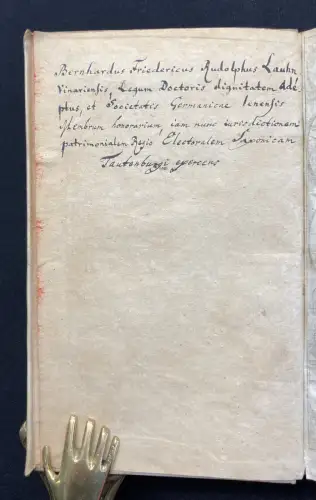 Bernhardus Friedericus Rudolphus Lauhn
Vinariensis, Legum Doctoris dignitatem Ade
ptus, et Societatis Germanicae Ienensis
Membrum honorarium, iam nunc iurisdictionem
patrimonialem Regio Electoralem Saxonicam
Tautenburgi exercens